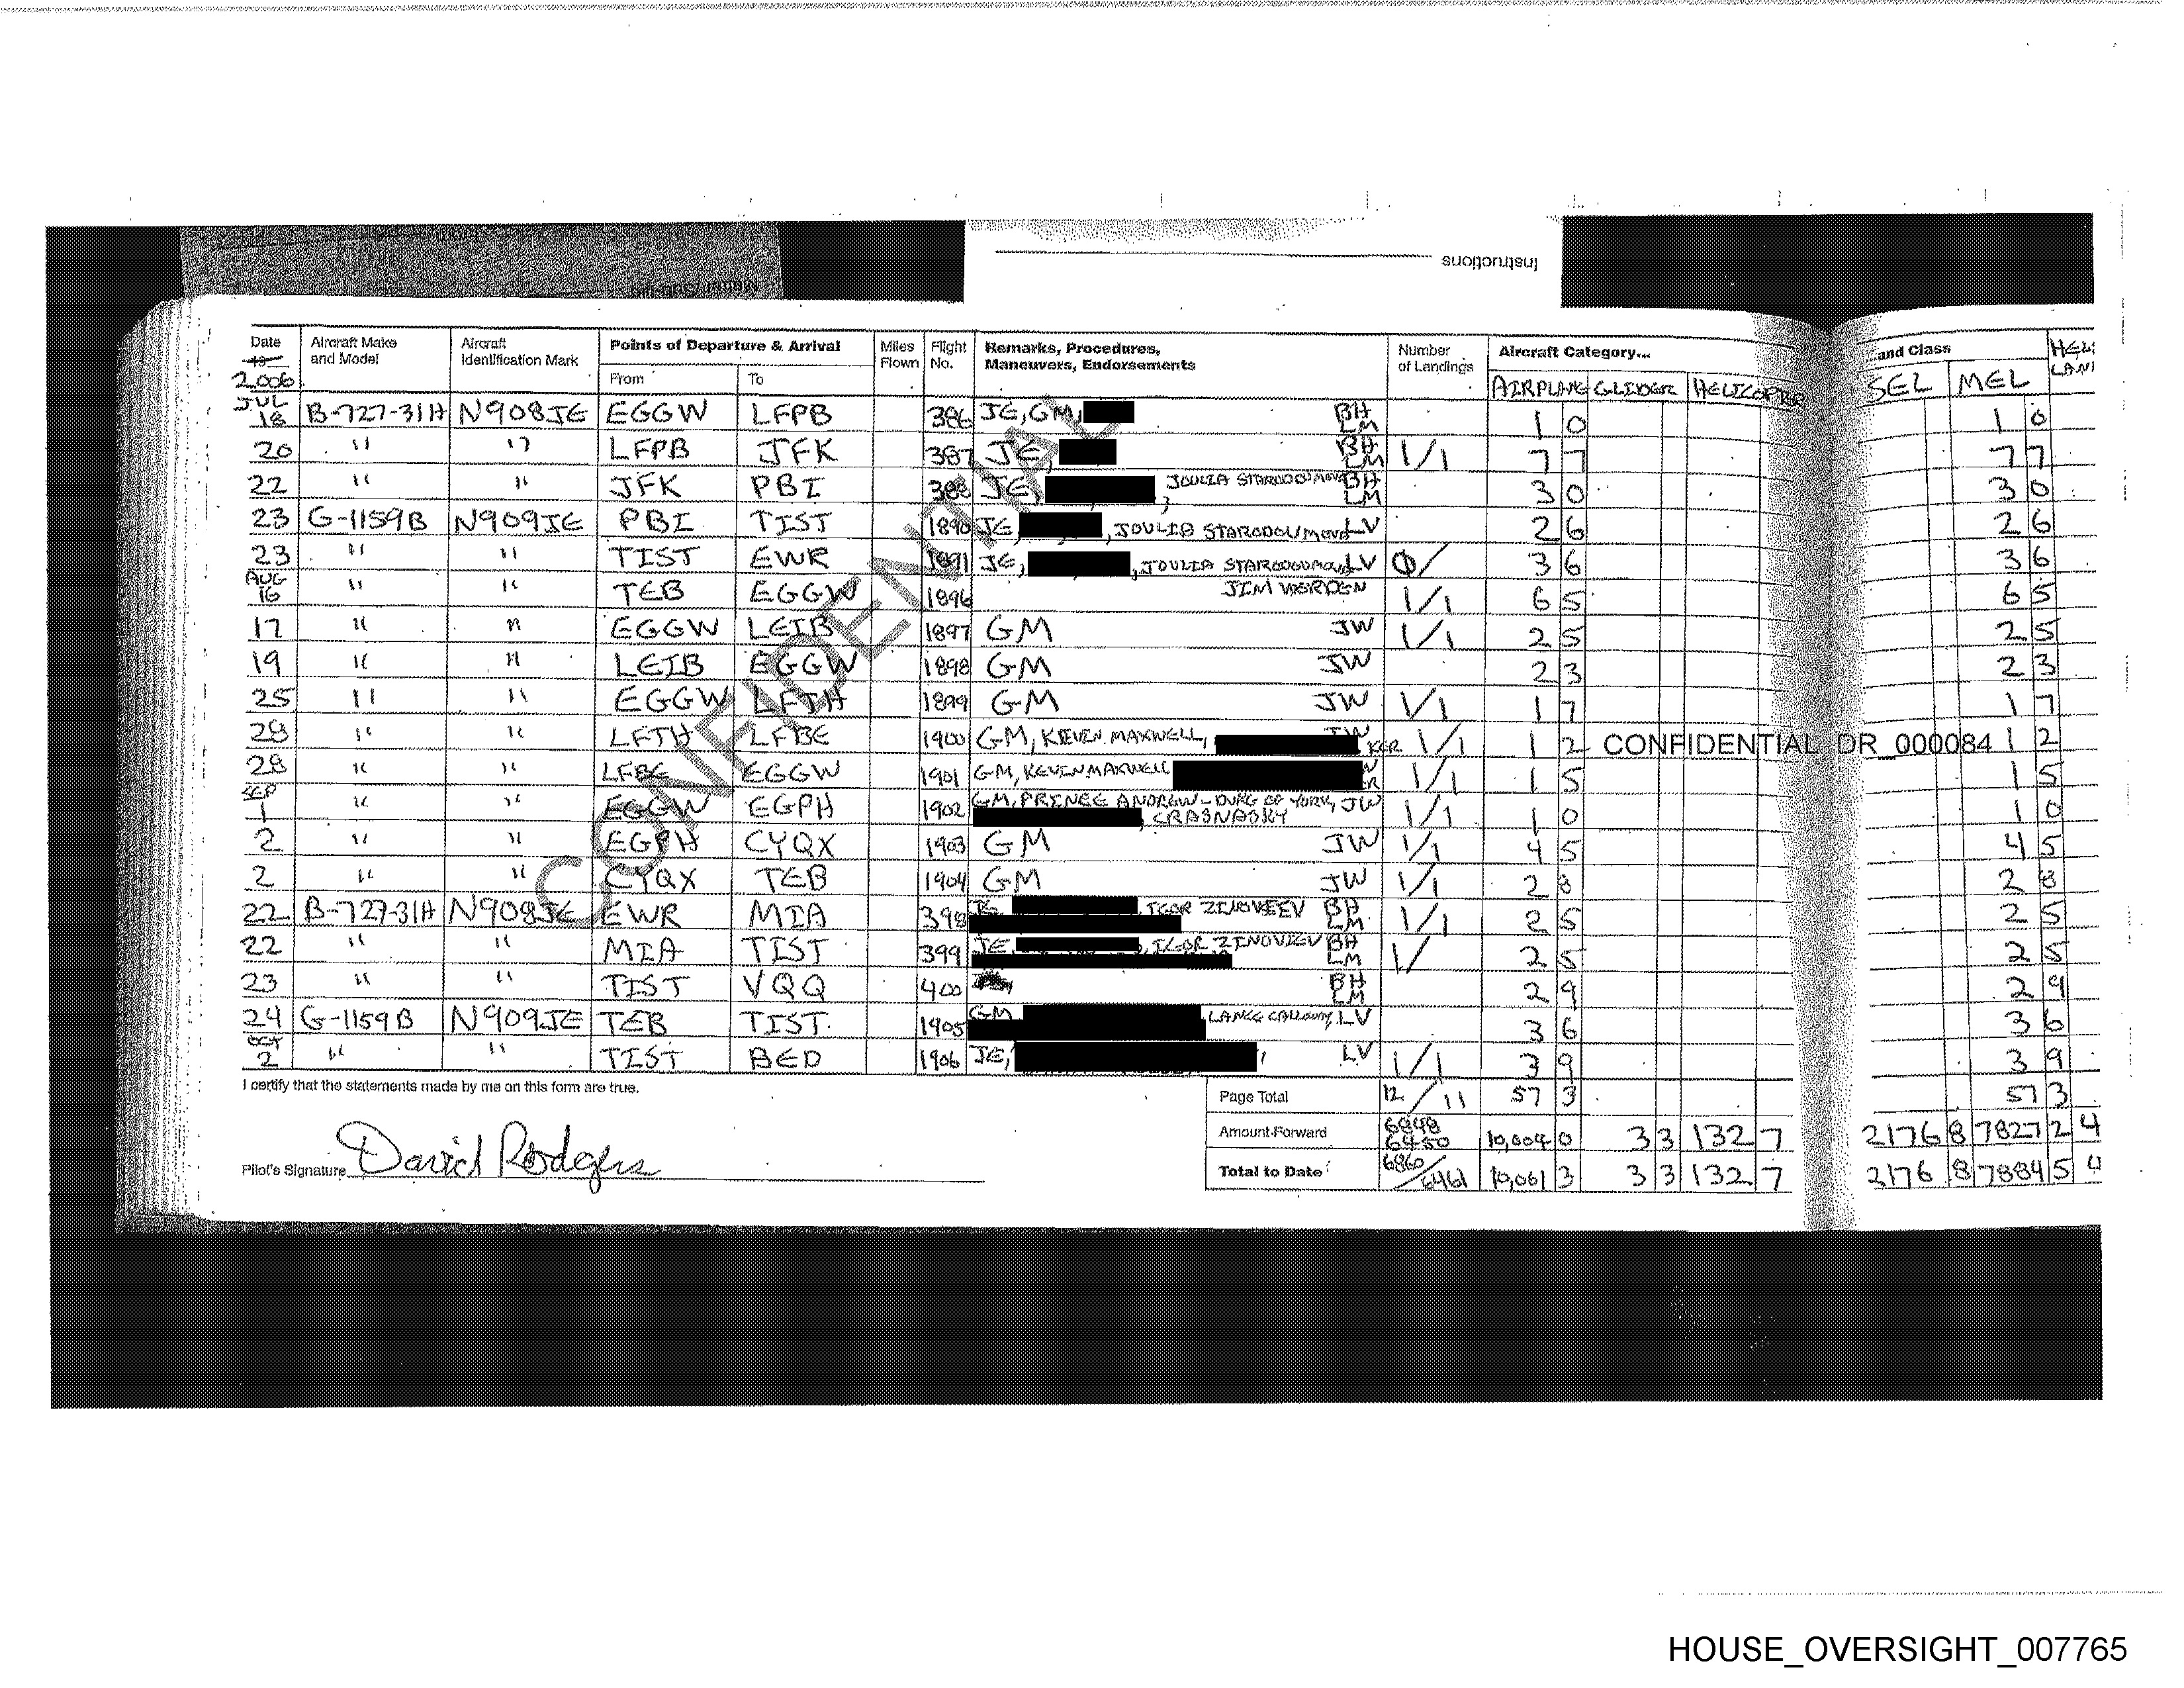 Instructions
Date Aircraft Make and Model Aircraft Identification Mark Points of Departure & Arrival Miles Flown Flight No. Remarks, Procedures, Maneuvers, Endorsements Number of Landings Aircraft Category... ...and Class
19 2006 From To AIRPLANE GLIDER HELICOPTER SEL MEL
JUL 18 B-727-31H N908JE EGGW LFPB 386 JE, GM, BH LM 1 0 1 0
20 " " LFPB JFK 387 JE, BH LM 1/1 7 7 7 7
22 " " JFK PBI 388 JE, JOULIA BH LM 3 0 3 0
23 G-1159B N909JE PBI TIST 1890 JE, , JOULIA STARODOUMOVA LV 2 6 2 6
23 " " TIST EWR 1891 JE, , JOULIA LV 0/ 3 6 3 6
AUG 16 " " TEB EGGW 1896 JIM 1/1 6 5 6 5
17 " " EGGW LEIB 1897 GM JW 1/1 2 5 2 5
19 " " LEIB EGGW 1898 GM JW 2 3 2 3
25 " " EGGW LFTH 1899 GM JW 1/1 1 7 1 7
28 " " LFTH LFBE 1900 GM, KEVIN MAXWELL, 1/1 1 2 CONFIDENTIAL DR_000084 1 2
28 " " LFBE EGGW 1901 GM, KEVIN MAXWELL 1/1 1 5 1 5
SEP 1 " " EGGW EGPH 1902 GM, PRINCE ANDREW - DUKE OF YORK, JW , CRASNASKY 1/1 1 0 1 0
2 " " EGPH CYQX 1903 GM JW 1/1 4 5 4 5
2 " " CYQX TEB 1904 GM JW 1/1 2 8 2 8
22 B-727-31H N908JE EWR MIA 398 , IGOR ZINOVEEV BH LM 1/1 2 5 2 5
22 " " MIA TIST 399 JE, , IGOR ZINOVIEV BH LM 1/ 2 5 2 5
23 " " TIST VQQ 400 BH LM 2 9 2 9
24 G-1159B N909JE TEB TIST 1905 GM LANCE LV 3 6 3 6
OCT 2 " " TIST BED 1906 JE, , LV 1/1 3 9 3 9
I certify that the statements made by me on this form are true.
Page Total 12/11 57 3 57 3
Amount Forward 6848 6450 10,004 0 3 3 132 7 2176 8 7827 2 4
Pilot's Signature David Rodgers Total to Date 6860/6461 10,061 3 3 3 132 7 2176 8 7884 5 4
CONFIDENTIAL
HOUSE_OVERSIGHT_007765